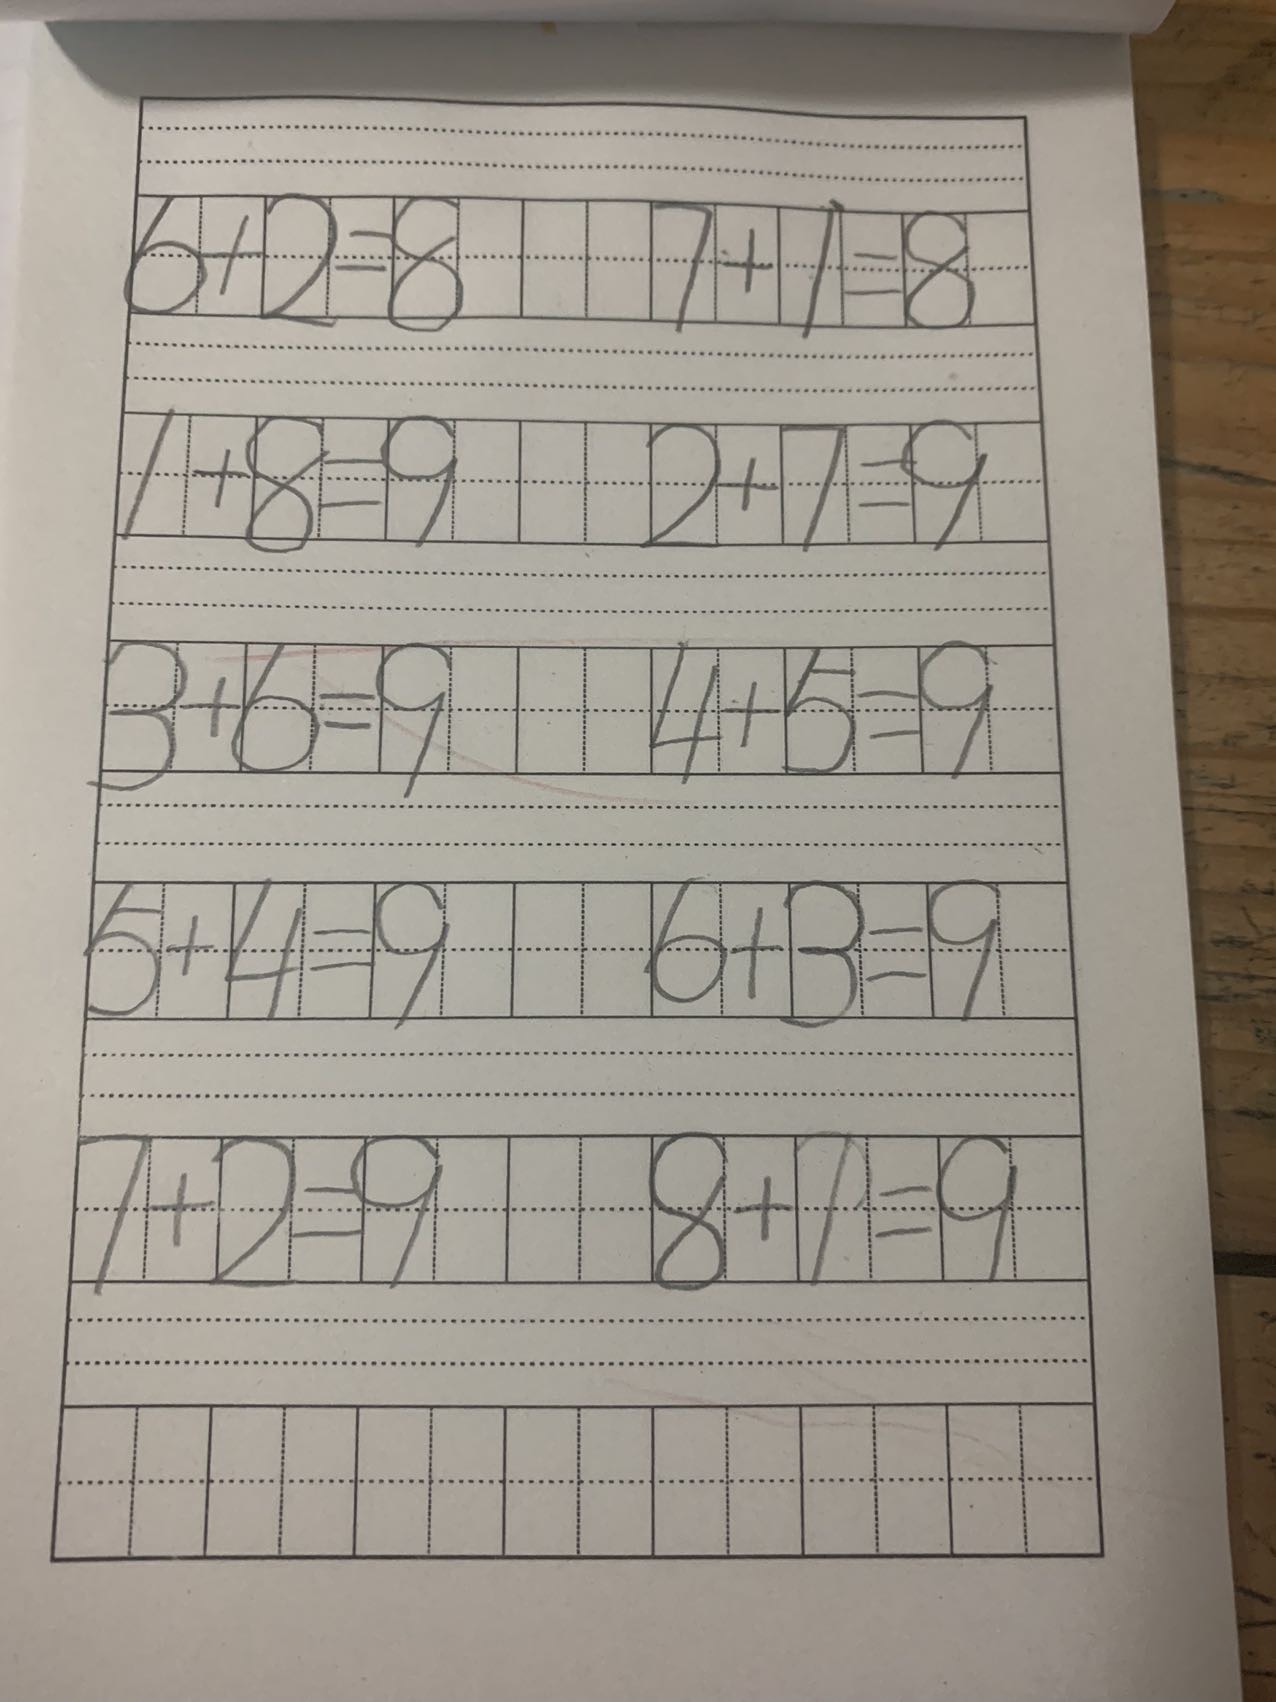 6+2=8 7+1=8
1+8=9 2+7=9
3+6=9 4+5=9
5+4=9 6+3=9
7+2=9 8+1=9